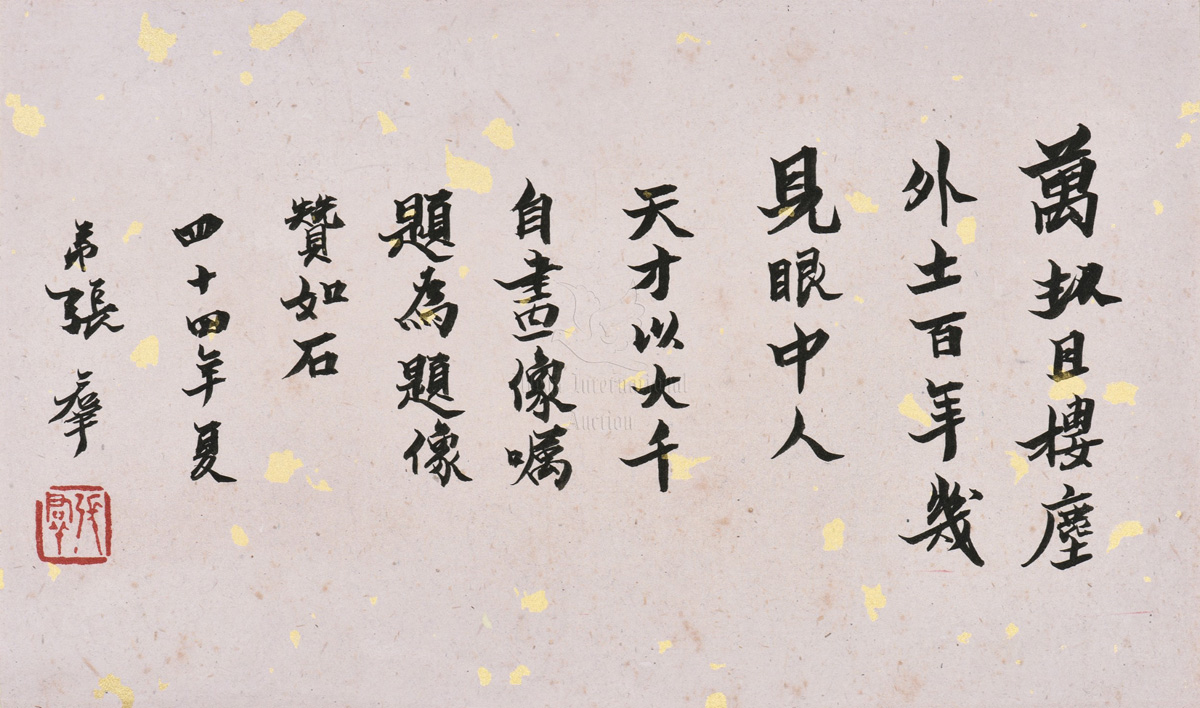 萬且樓塵
外土百年幾
見眼中人
天才以大千
自畫像囑
題為題像
贊如右
四十四年夏
弟張羣
張羣
International
Auction